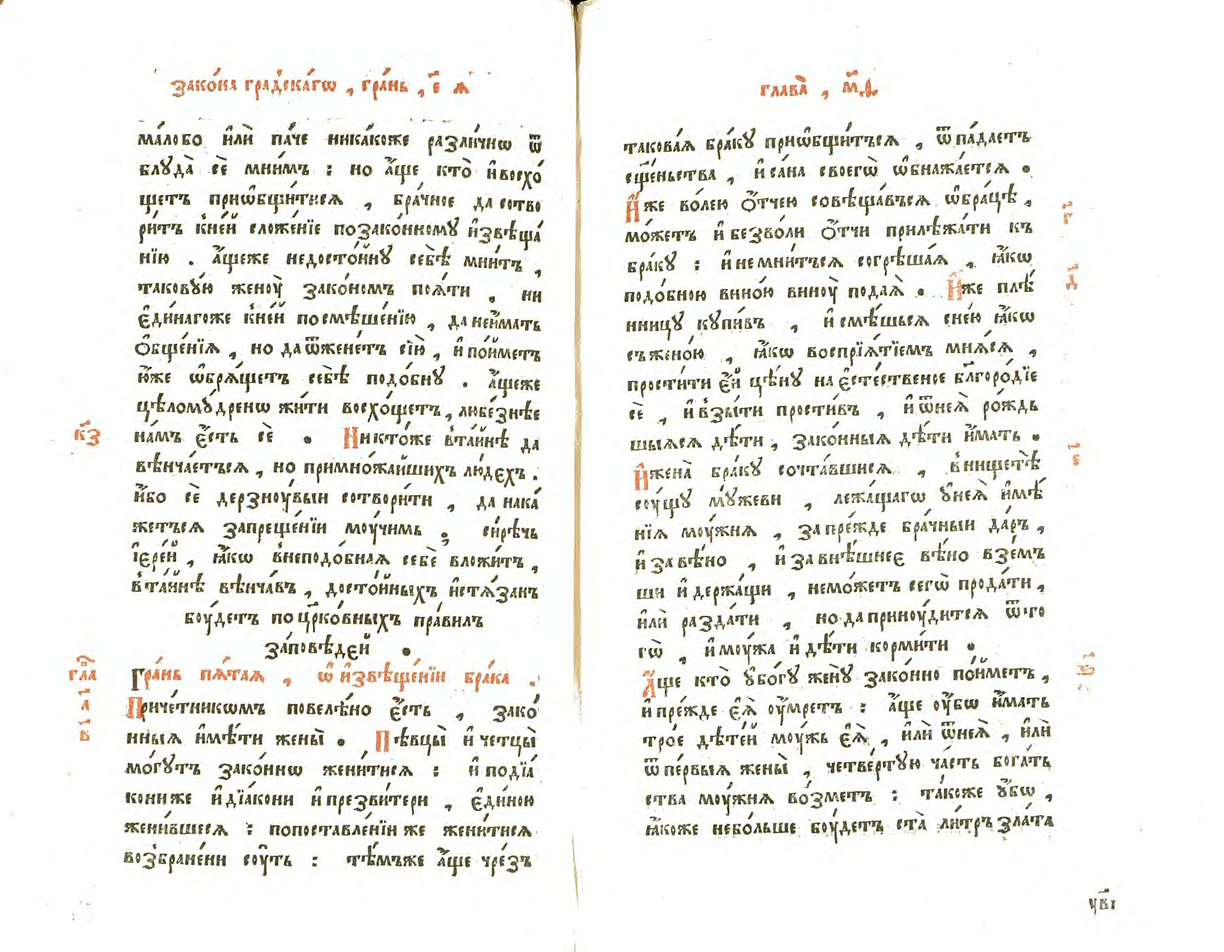 зако́на гра́дскагѡ , гра́нь , є҃ ѧ
ма́лобо и҆лѝ па́че ника́коже разли́чнѡ ѿ
блуда̀ сѐ мни́мъ : но а҆́ще кто̀ и҆восхо́
щетъ приѡбщи́тисѧ , бра́чное да сотво
ри́тъ к҆не́й сложе́нїе позако́нному и҆звѣща́
нїю . а҆́щеже недосто́йну себѣ̀ мни́тъ ,
такову́ю женоу̀ зако́номъ поѧ́ти , ни
є҆ди́нагоже к҆не́й посмѣше́нїю , да неи҆́мать
ѻ҆бще́нїѧ , но даѿжене́тъ сїю̀ , и҆ по́йметъ
ю҆́же ѡ҆брѧ́щетъ себѣ̀ подо́бну . а҆́щеже
цѣлому́дренѡ жи́ти восхо́щетъ , любе́знѣе
на́мъ є҆́сть сѐ . Никто́же в҆та́йнѣ да
вѣнча́етъсѧ , но примно́жайшихъ лю́дехъ .
и҆́бо сѐ дерзноу́выи сотвори́ти , да нака́
жетъсѧ запреще́нїи моу́чимь , си́рѣчь
і҆ере́й , ꙗ҆́кѡ в҆неподо́бнаѧ себѐ вложи́тъ ,
в҆та́йнѣ вѣнча́въ , досто́йныхъ и҆стѧ́занъ
боу́детъ по цр҃ко́вныхъ пра́вилъ
за́повѣдей .
Гра́нь пѧ́таѧ , ѡ҆ и҆звѣще́нїи бра́ка .
Приче́тникѡмъ повеле́но є҆́сть , зако́
нныѧ и҆мѣ́ти жены̀ . Пѣвцы̀ и҆ четцы̀
мо́гутъ зако́ннѡ жени́тисѧ : и҆ подїа́
кони же и҆ дїа́кони и҆ презви́тери , є҆ди́ною
жени́вшесѧ : попоставле́нїи же жени́тисѧ
возбране́ни соу́ть : тѣ́мъже а҆́ще чре́зъ
к҃з
гла
а҃
в҃
глава̀ , м҃ѳ
такова́ѧ бра́ку приѡбщи́тъсѧ , ѿпа́даетъ
сщ҃е́ньства , и҆ са́на своегѡ̀ ѡ҆бнажа́етсѧ .
И҆́же во́лею ѻ҆́тчею совѣща́въсѧ ѡ҆бра́цѣ ,
мо́жетъ и҆ безво́ли ѻ҆́тчи прилѣжа́ти къ
бра́ку : и҆ немни́тьсѧ согрѣша́ѧ , ꙗ҆́кѡ
подо́бною вино́ю виноу̀ пода́ѧ . И҆́же плѣ́
нницу купи́въ , и҆ смѣ́шьсѧ с нею̀ ꙗ҆́кѡ
съжено́ю , ꙗ҆́кѡ воспрїѧ́тїемъ мнѧ́сѧ ,
прости́ти є҆́й цѣ́ну на є҆сте́ственое бл҃горо́дїе
сѐ , и҆ взы́ти прости́въ , и҆ ѿнеѧ̀ ро́ждь
шыѧсѧ дѣ́ти , зако́нныѧ дѣ́ти и҆́мать .
И҆жена̀ бра́ку сочта́вшисѧ , в҆нищетѣ̀
соу́щу му́жеви , лежа́щагѡ у҆неѧ̀ и҆мѣ́
нїѧ моу́жнѧ , запре́жде бра́чныи да́ръ ,
и҆ за вѣ́но , и҆ за внѣ́шнее вѣ́но взе́мъ
ши и҆ держа́щи , немо́жетъ сегѡ̀ прода́ти ,
и҆лѝ разда́ти , но да приноу́дитсѧ ѿ то
гѡ̀ , и҆ моу́жа и҆ дѣ́ти корми́ти .
А҆́ще кто̀ у҆бо́гу жену̀ зако́нно по́йметъ ,
и҆ пре́жде є҆ѧ̀ оу҆́мретъ : а҆́ще оу҆́бѡ и҆́мать
тро́е дѣте́й моу́жъ є҆ѧ̀ , и҆лѝ ѿнеѧ̀ , и҆лѝ
ѿ пе́рвыѧ жены̀ , четве́ртую ча́сть бога́ть
ства моу́жнѧ во́зметъ : та́коже у҆́бѡ ,
ꙗ҆́коже небо́льше боу́детъ ста̀ ли́тръ зла́та
г҃
д҃
є҃
ѕ҃
ув҃і